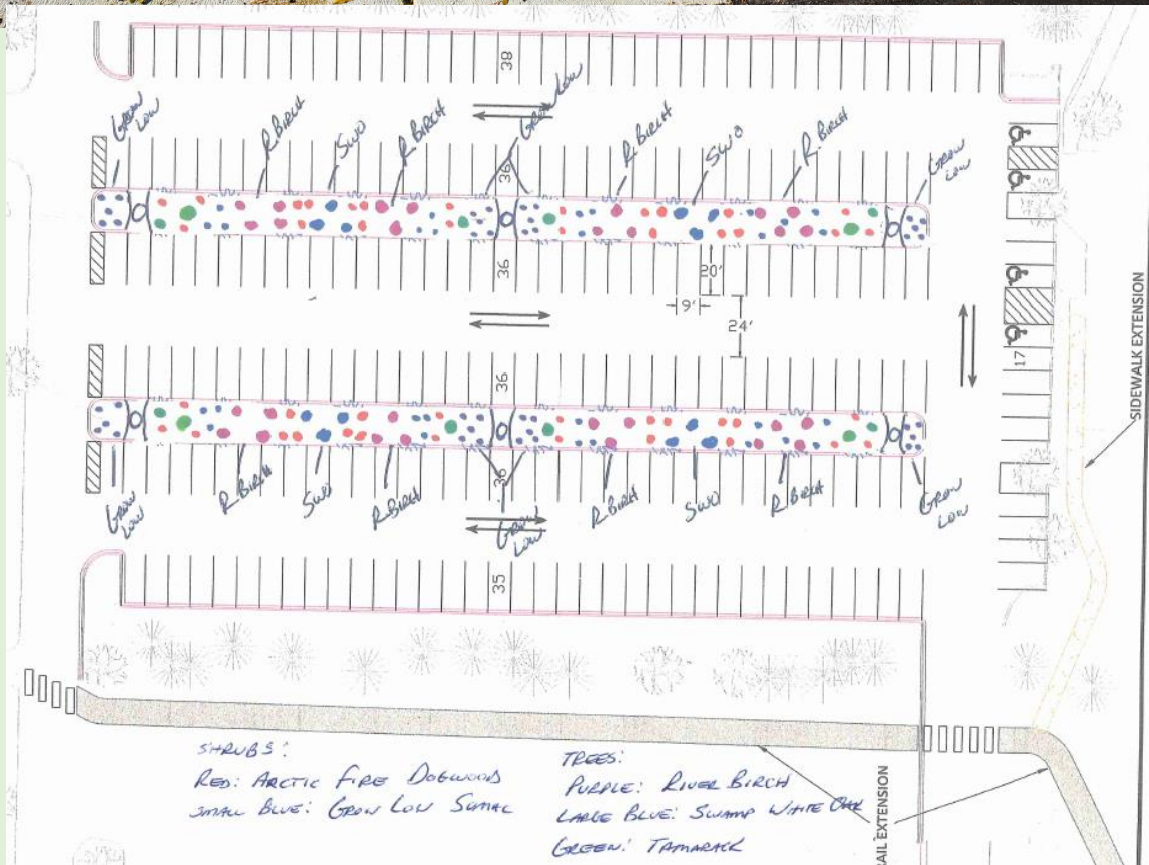 38
GROW LOW
R. BIRCH
SWO
R. BIRCH
GROW LOW
R. BIRCH
SWO
R. BIRCH
GROW LOW
36
36
20'
9'
24'
17
SIDEWALK EXTENSION
36
36
GROW LOW
R. BIRCH
SWO
R. BIRCH
GROW LOW
R. BIRCH
SWO
R. BIRCH
GROW LOW
35
SHRUBS:
RED: ARCTIC FIRE DOGWOOD
SMALL BLUE: GROW LOW SUMAC
TREES:
PURPLE: RIVER BIRCH
LARGE BLUE: SWAMP WHITE OAK
GREEN: TAMARACK
AIL EXTENSION